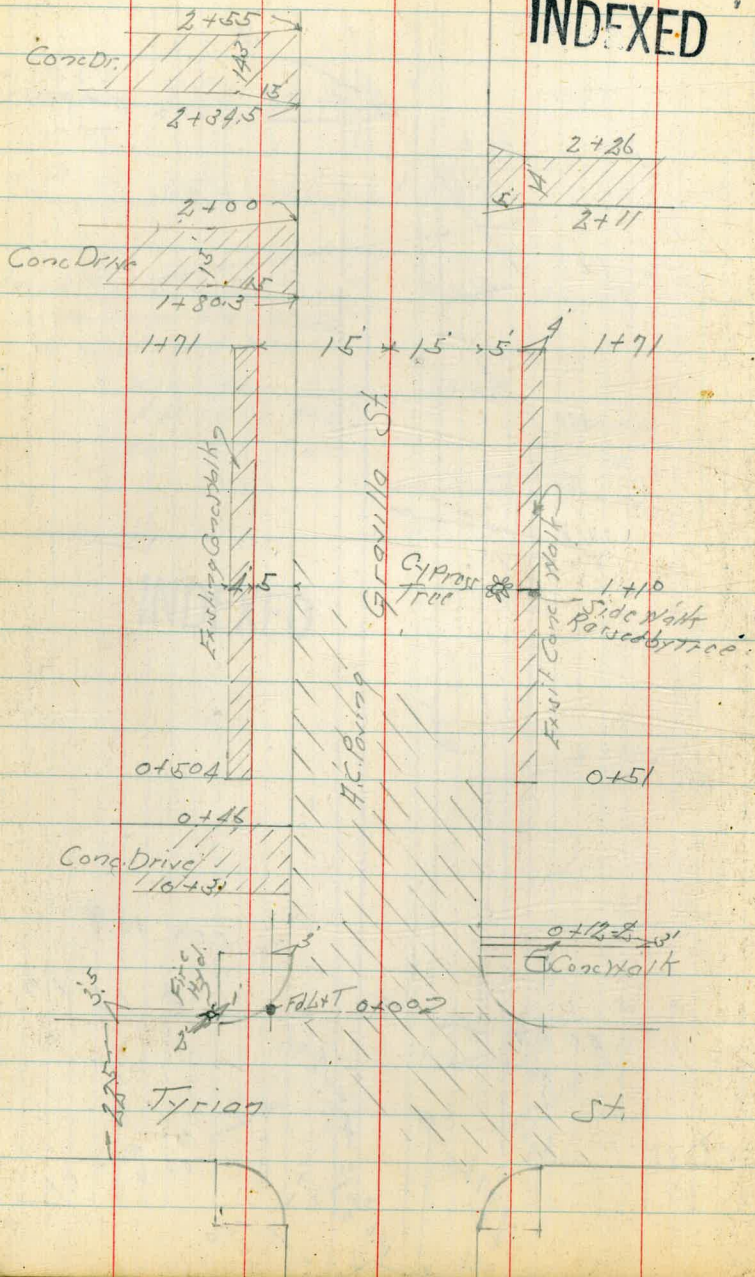 INDEXED
2+55
Conc Dr.
14.3'
15'
2+34.5
2+26
14
5'
2+11
2+00
Conc Drive
15'
15
1+80.3
4'
1+71
15' 15' 5'
1+71
Existing Conc Walk
Gravilla St.
Exist Conc Walk
Cypress
Tree
4' 5'
1+10
Side Walk
Raised by Tree
A.C. Paving
0+504
0+51
0+46
Conc. Drive
0+31
0+12
3'
3'
Conc Walk
Fire
Hyd.
3.5
1'
2'
Fd L+T 0+002
22.5
Tyrian St.